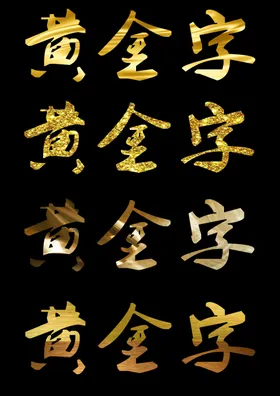 黄金字
黄金字
黄金字
黄金字